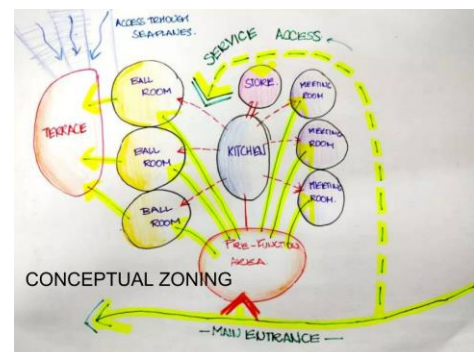 ACCESS THROUGH
SEAPLANES.
SERVICE ACCESS
TERRACE
BALL
ROOM
BALL
ROOM
BALL
ROOM
STORE.
KITCHEN
MEETING
ROOM
MEETING
ROOM
MEETING
ROOM.
PRE-FUNCTION
AREA.
CONCEPTUAL ZONING
-MAIN ENTRANCE-